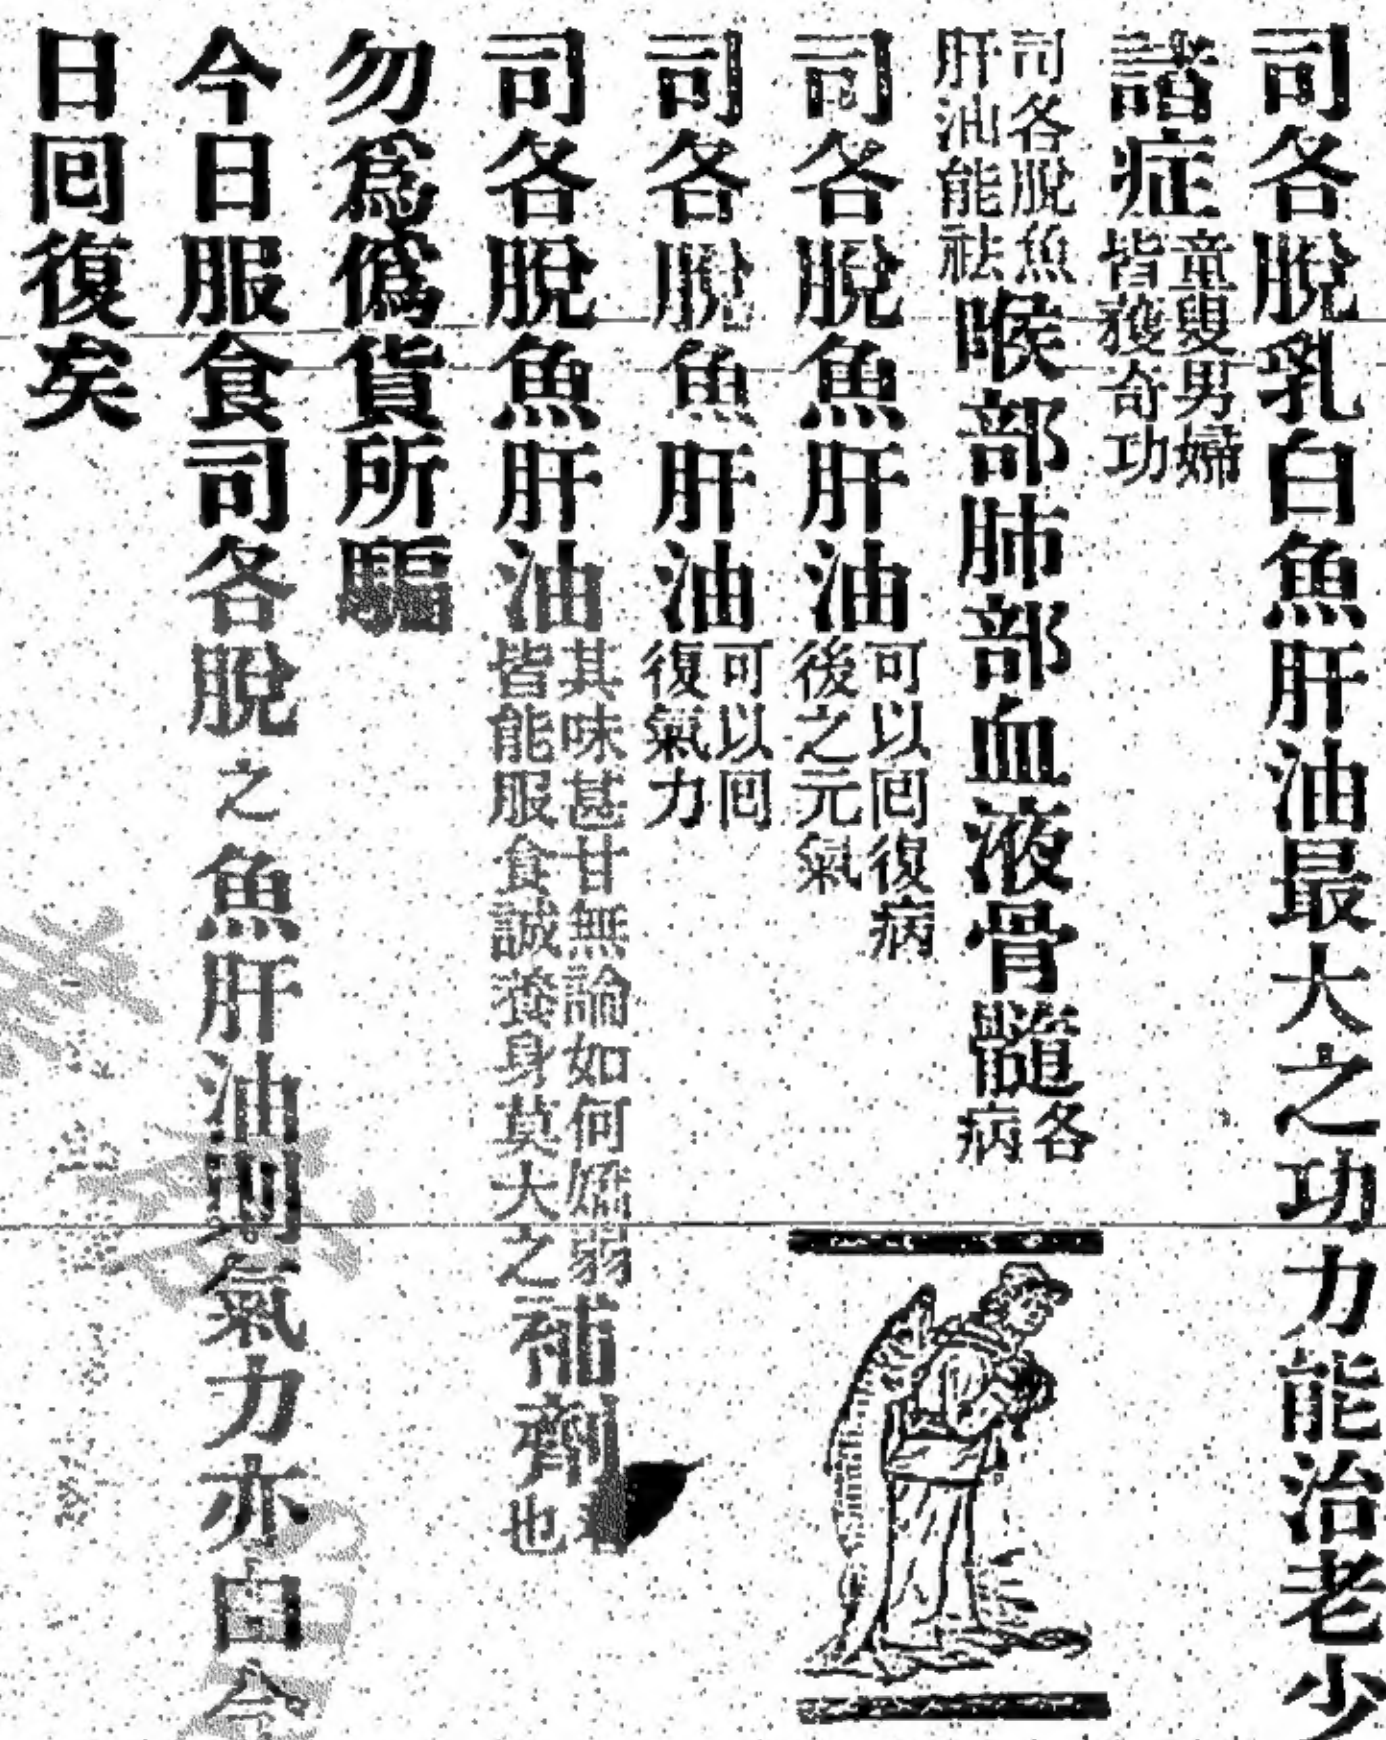 司各脫乳白魚肝油最大之功力能治老少
諸症童叟男婦皆獲奇功
司各脫魚肝油能祛喉部肺部血液骨髓各病
司各脫魚肝油可以囘復病後之元氣
司各脫魚肝油可以囘復氣力
司各脫魚肝油其味甚甘無論如何孱弱皆能服食誠養身莫大之補劑也
勿爲僞貨所騙
今日服食司各脫之魚肝油則氣力亦由今
日囘復矣